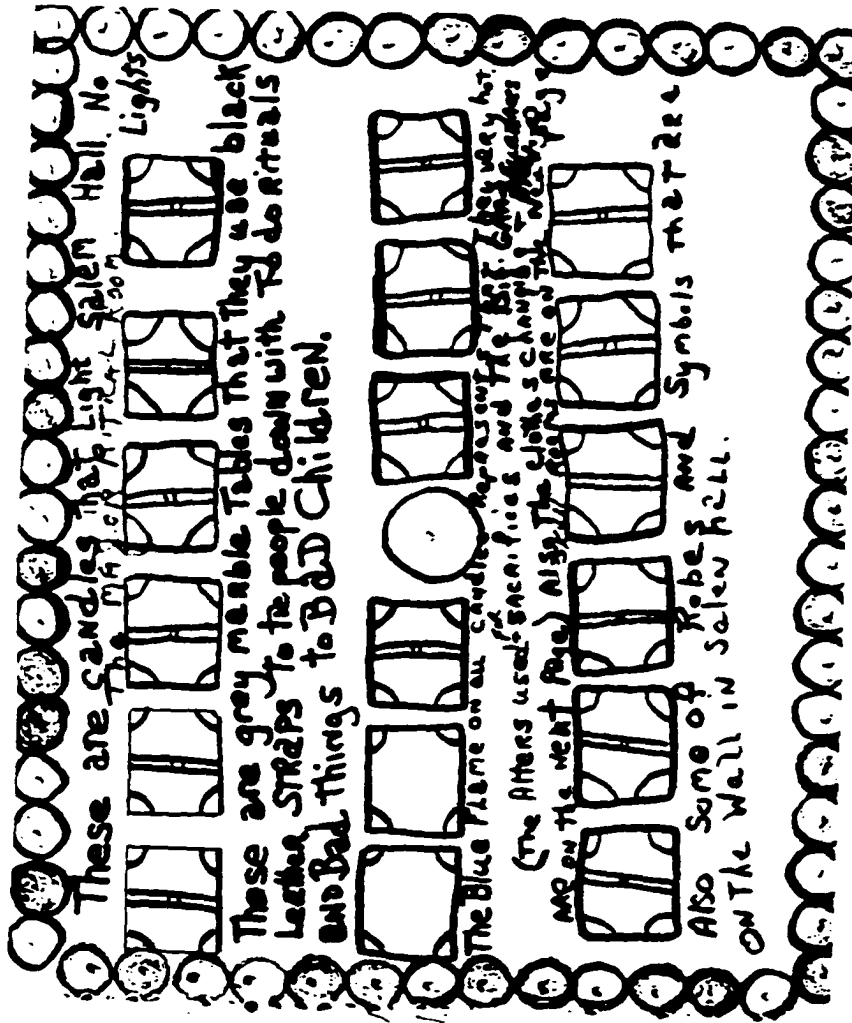 These are candles that Light Salem Hall. No Lights
The MAIN HOSPITAL ROOM
These are grey marble Tables that they use black
Leather STRAPS To tie people down with To do Rituals
AND Bad things to BaD Children.
The Blue Flame on all candles Represent very hot.
(The Alters used for SACRIFICES AND The
ARE on the Next Page) Also The clothes changing Rooms are on the Next Page
Also Some of Robes AND Symbols that are
ON The Wall IN Salem hall.